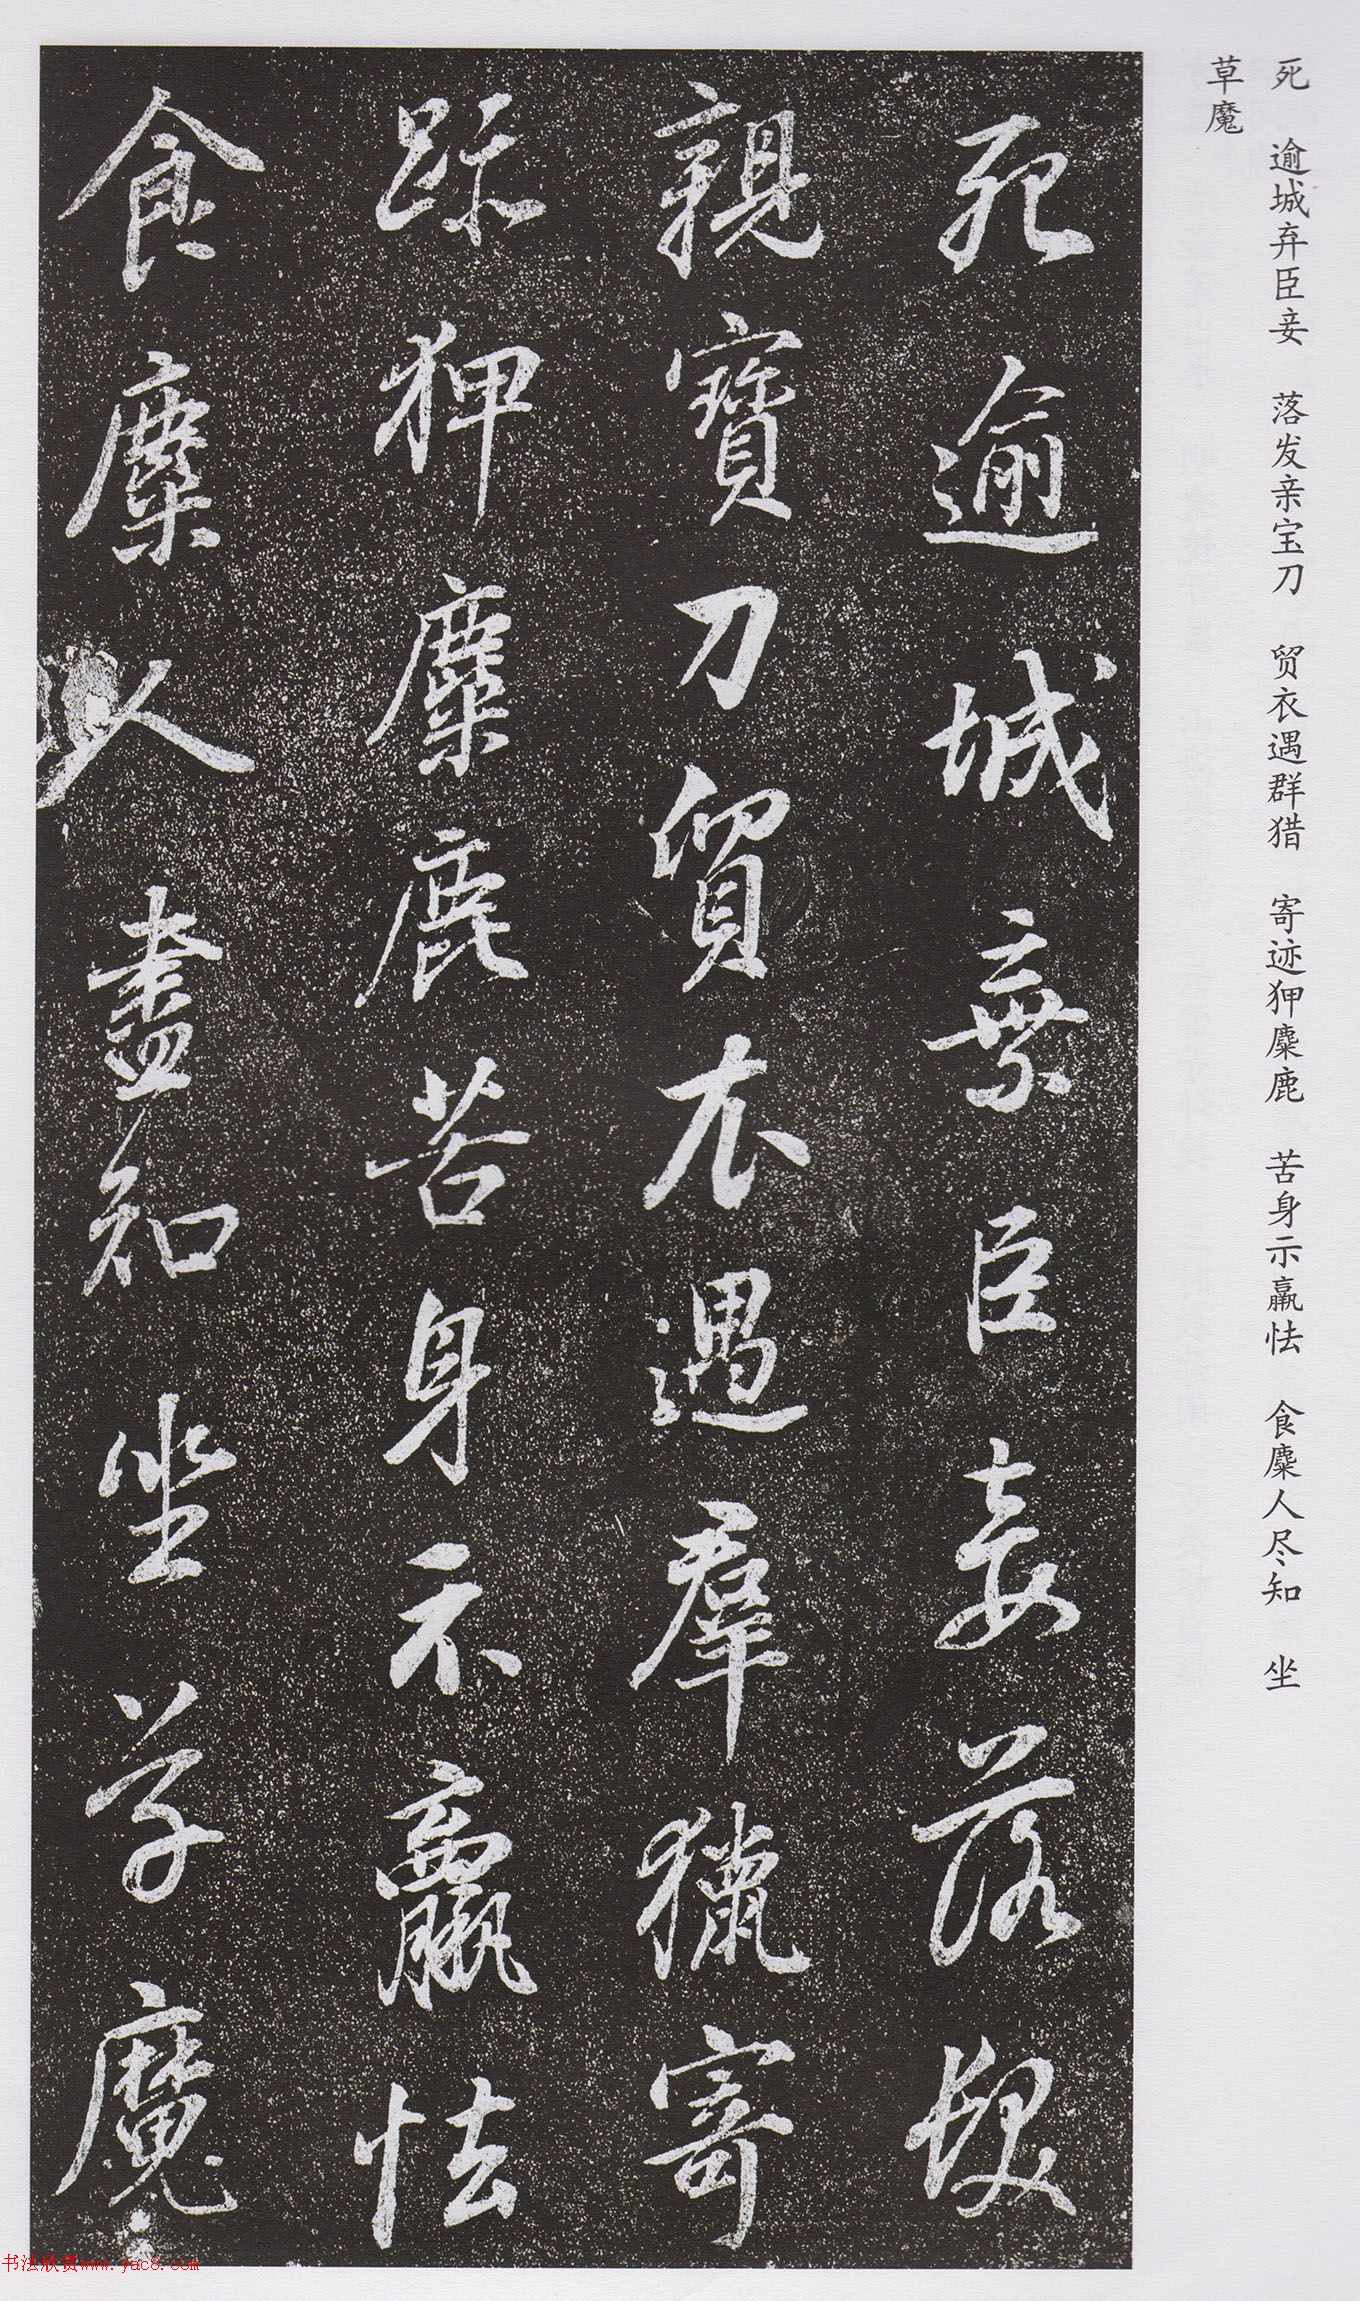 死 逾城弃臣妾 落发亲宝刀 贸衣遇群猎 寄迹狎麋鹿 苦身示羸怯 食麋人尽知 坐
草魔
死逾城棄臣妾落髮
親寶刀貿衣遇羣獵寄
跡狎麋鹿苦身示羸怯
食麋人盡知坐草魔
书法欣赏www.yac8.com